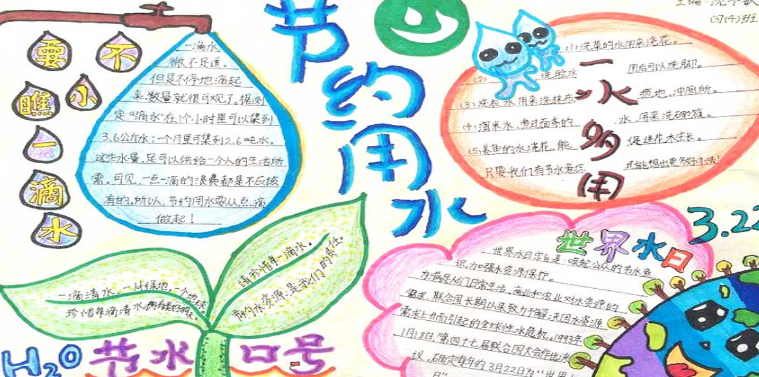 主编:沈
四(4)班
不要小瞧一滴水
一滴水
微不足道。
但是不停地滴起
来,数量就很可观了。据测
定“滴水”在1个小时里可以集到
3.6公斤水;一个月里可集到2.6吨水。
这些水量,足可以供给一个人的生活所
需。可见,一点一滴的浪费都是不应该
有的。所以,节约用水要从点滴
做起!
节约用水
一水多用
(1):洗菜的水用来浇花。
(2)
洗脸水
用后可以洗脚。
(3):洗衣水用来洗抹布
拖地,冲厕所。
(4):淘米水,
水,用来洗碗筷。
(5):养鱼的水浇花,能
促进花木生长。
只要我们有节水意识
请珍惜每一滴水。
节约水资源是我们的责任。
一滴清水,一片绿地,一个地球
珍惜每滴清水,拥有美好明天
H2O 节水口号
3.22
世界水日
世界水日宗旨是:唤起公众的节水意
识,加强水资源保护。
为满足人们日常生活、商业和农业对水资源的
需求,联合国长期以来致力于解决因水资源
需求上升而引起的全球性水危机。1993年
1月18日,第四十七届联合国大会作出决
议,确定每年的3月22日为“世界水
日”